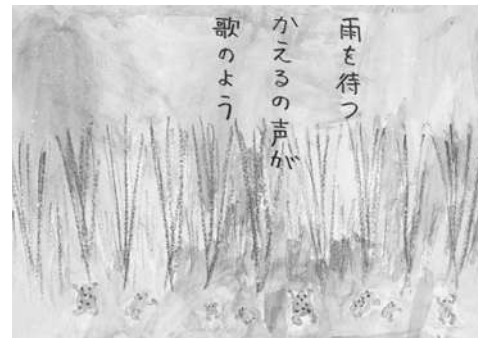 雨を待つ
かえるの声が
歌のよう